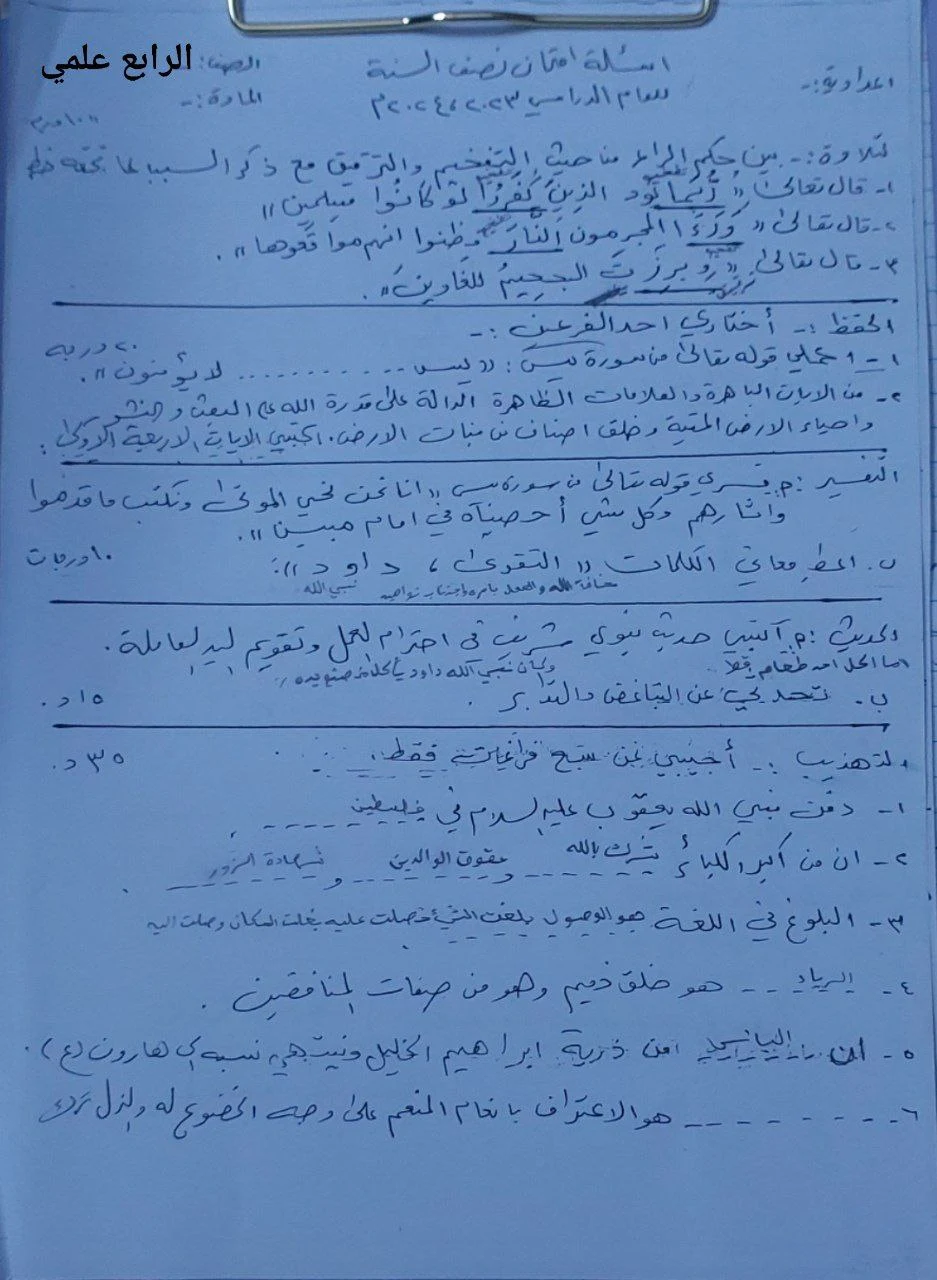 الرابع علمي
اعدادية:- اسئلة امتحان نصف السنة الصف:
للعام الدراسي ٢٠٢٣، ٢٠٢٤م المادة:-
التلاوة:- بين حكم الراء من حيث التفخيم والترقيق مع ذكر السبب لما تحته خط
١- قال تعالى "رُّبَمَا يَوَد الذينَ كَفَرُوا لَوْ كانُوا مسلمين"
٢- قال تعالى "وَرَءَا المجرمون النَّارَ فظنوا انهم مواقعوها".
٣- قال تعالى "وبرزت الجحيمُ للغاوينَ".
الحفظ:- أختاري احد الفرعين:-
٢٠ درجة
١- اكملي قوله تعالى من سورة يس: "يس ........... لا يؤمنون".
٢- من الايات الباهرة والعلامات الظاهرة الدالة على قدرة الله على البعث والنشور
واحياء الارض الميتة وخلق اصناف من نبات الارض. اكتبي الايات الاربعة الاولى:
التفسير: م. فسري قوله تعالى من سورة يس "انا نحن نحي الموتى ونكتب ما قدموا
وآثارهم وكل شي أحصيناه في امام مبين".
ب. اعطِ معاني الكلمات "التقوى، داود": ١٠ درجات
مخافة الله والعمل بامره واجتناب نواهيه نبي الله
الحديث: م. اكتبي حديث نبوي شريف في احترام العمل وتقويم اليد العاملة.
ما اكل احد طعام قط وكان نبي الله داود يأكل من صنع يده
ب. تحدثي عن التباغض والتدابر. ١٥ د.
التهذيب:- أجيبي عن سبع فراغات فقط: ٣٥ د.
١- دفن نبي الله يعقوب عليه السلام في فلسطين ----.
٢- ان من أكبر الكبائر شرك بالله و عقوق الوالدين و شهادة الزور.
٣- البلوغ في اللغة هو الوصول بلغت الشي أحصلت عليه بلغت المكان وصلت اليه
٤- الرياء -- هو خلق ذميم وهو من صفات المنافقين.
٥- ان الياس من ذرية ابراهيم الخليل وينتهي نسبه الى هارون (ع).
٦- -------- هو الاعتراف بانعام المنعم على وجه الخضوع له والذل